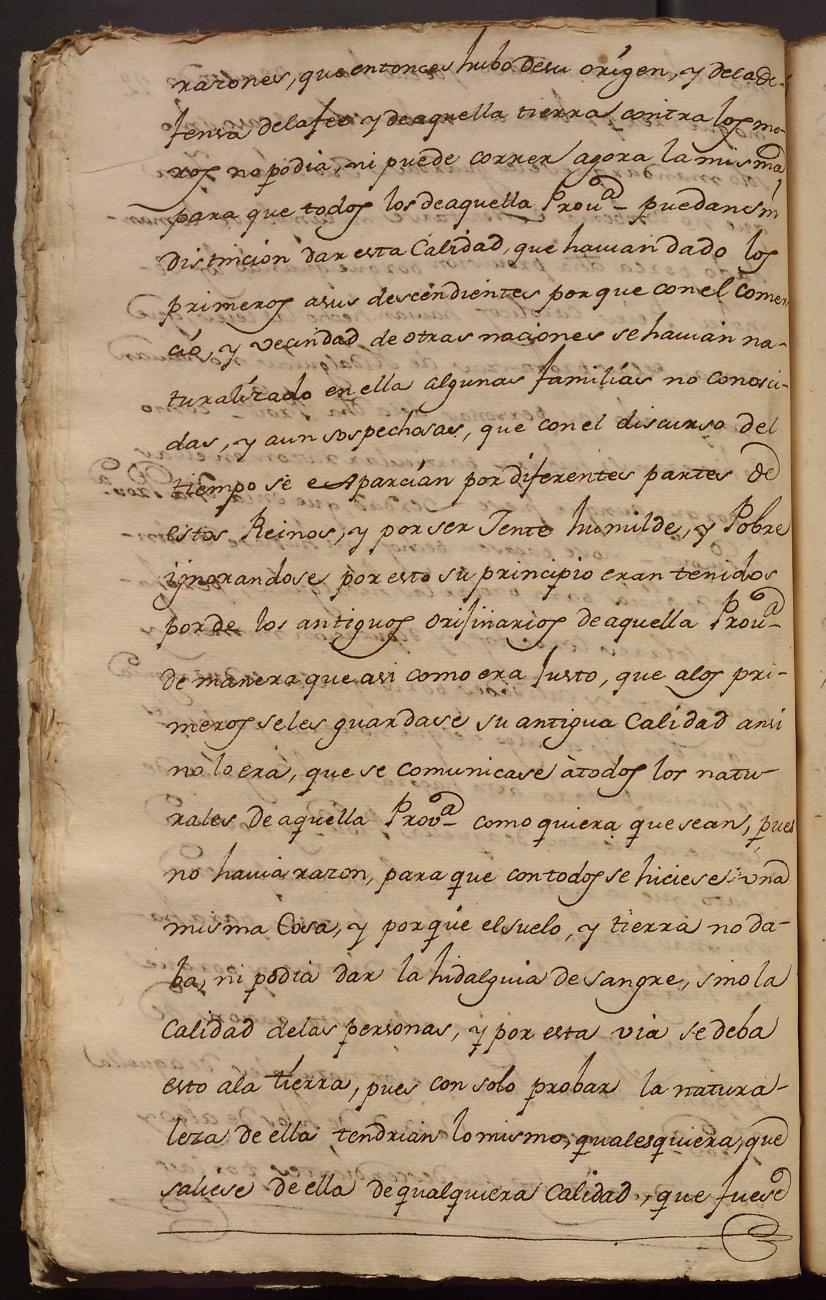 razones, que entonces hubo de su orígen, y de la de-
fensa de la fee y de aquella tierra contra los mo-
ros no podia, ni puede correr agora la misma
para que todos los de aquella Prouª puedan sin
distincion dar esta Calidad, que hauian dado los
primeros a sus descendientes por que con el comer
cio, y vecindad de otras naciones se hauian na-
turalizado en ella algunas familias no conosci-
das, y aun sospechosas, que con el discurso del
tiempo se esparcian por diferentes partes de
estos Reinos, y por ser Jente humilde, y Pobre
ignorandose por esto su principio eran tenidos
por de los antiguos orijinarios de aquella Prouª
de manera que asi como era Justo, que a los pri-
meros se les guardase su antigua Calidad ansi
no lo era, que se comunicase à todos los natu-
rales de aquella Provª como quiera que sean, pues
no hauia razon, para que con todos se hiciese una
misma Cosa, y porque el suelo, y tierra no da-
ba, ni podia dar la hidalguia de sangre, sino la
Calidad de las personas, y por esta via se deba
esto a la tierra, pues con solo probar la natura-
leza de ella tendrian lo mismo, qualesquiera, que
saliese de ella de qualquiera Calidad, que fuese